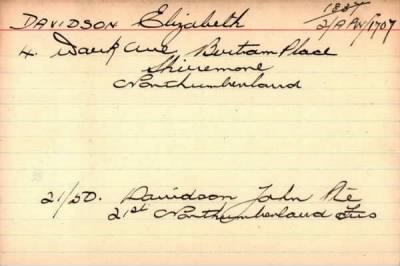 DAVIDSON Elizabeth 1887
2/APW/1707
4. Wark Ave, Bertram Place
Shiremore
Northumberland
21/50. Davidson John Pte
21st Northumberland Fus